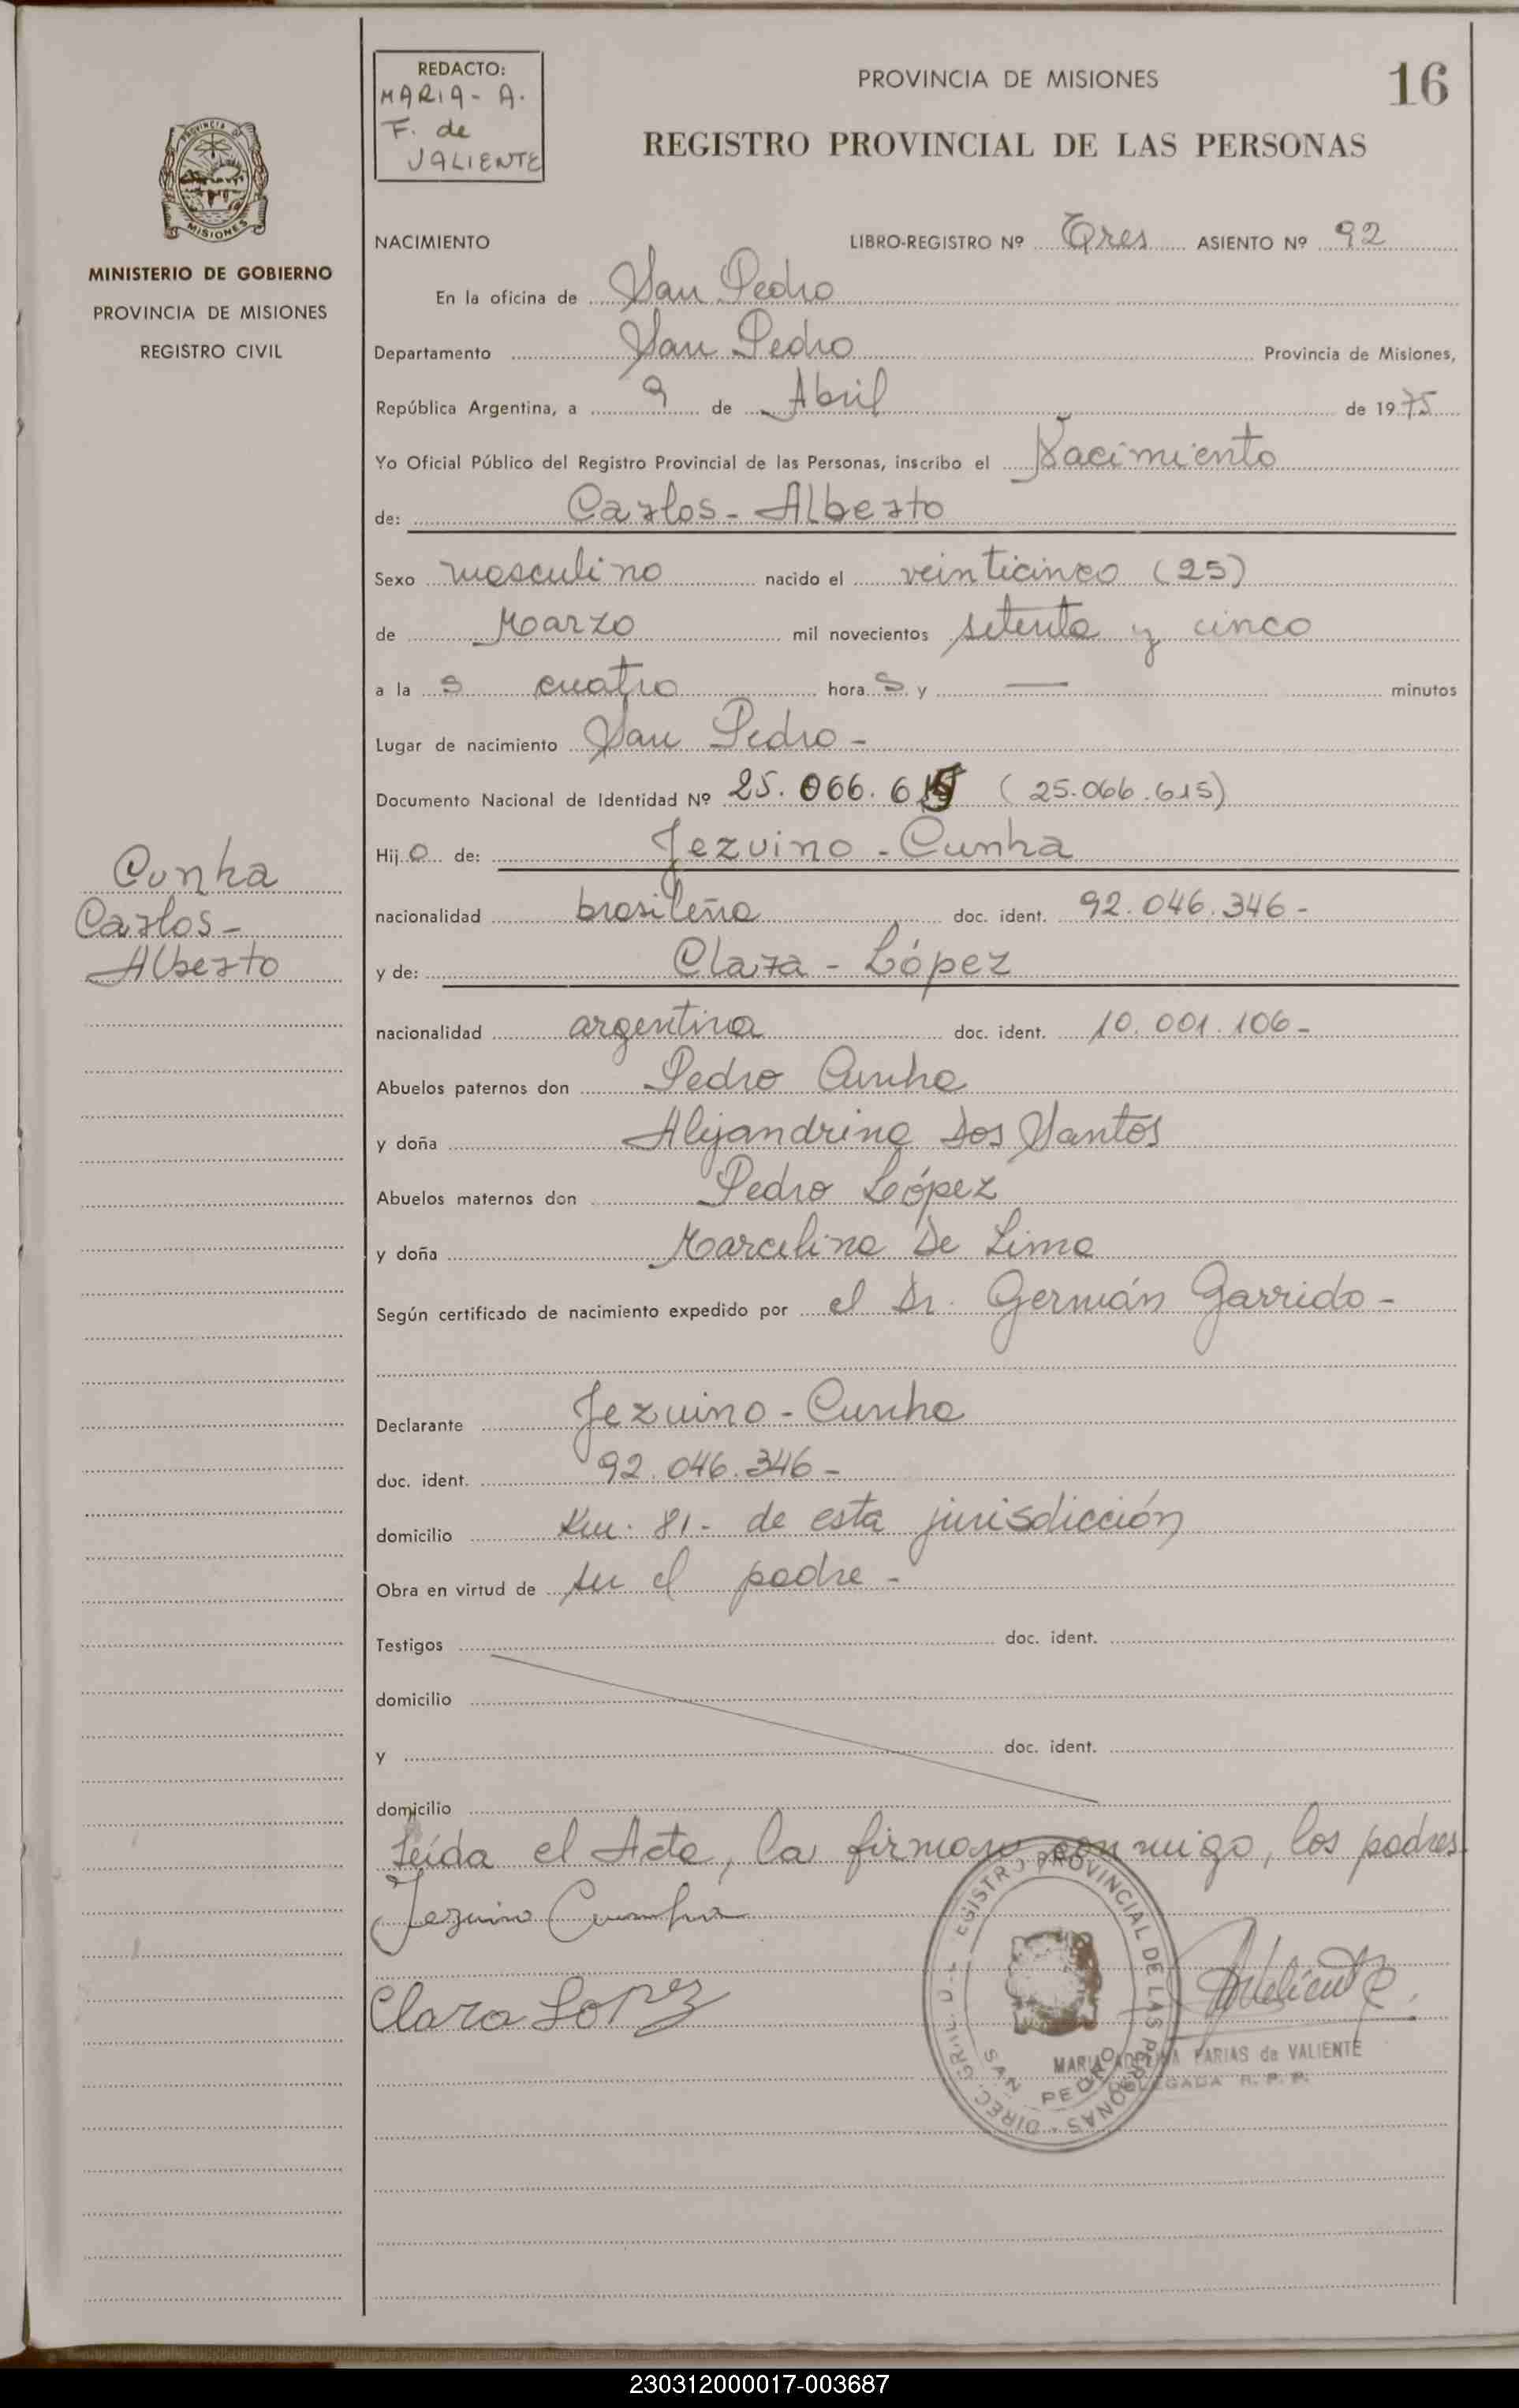 REDACTO:
MARIA - A.
F. de
VALIENTE
PROVINCIA DE MISIONES
16
REGISTRO PROVINCIAL DE LAS PERSONAS
PROVINCIA DE
MISIONES
MINISTERIO DE GOBIERNO
PROVINCIA DE MISIONES
REGISTRO CIVIL
NACIMIENTO LIBRO-REGISTRO Nº Tres ASIENTO Nº 92
En la oficina de San Pedro
Departamento San Pedro Provincia de Misiones,
República Argentina, a 9 de Abril de 1975
Yo Oficial Público del Registro Provincial de las Personas, inscribo el Nacimiento
de: Carlos - Alberto
Sexo masculino nacido el veinticinco (25)
de Marzo mil novecientos setenta y cinco
a las cuatro horas y — minutos
Lugar de nacimiento San Pedro -
Documento Nacional de Identidad Nº 25.066.615 (25.066.615)
Hijo de: Jezuino - Cunha
nacionalidad brasileña doc. ident. 92.046.346 -
y de: Clara - López
nacionalidad argentina doc. ident. 10.001.106 -
Abuelos paternos don Pedro Cunha
y doña Alejandrina Dos Santos
Abuelos maternos don Pedro López
y doña Marcelina De Lima
Según certificado de nacimiento expedido por el Dr. Germán Garrido -
Declarante Jezuino - Cunha
doc. ident. 92.046.346 -
domicilio Km. 81 - de esta jurisdicción
Obra en virtud de ser el padre -
Testigos doc. ident.
domicilio
y doc. ident.
domicilio
Leída el Acta, la firman conmigo, los padres
Cunha
Carlos -
Alberto
Jezuino Cunha
Clara Lopez
DIREC. GRAL. D EGISTRO PROVINCIAL DE LAS PERSONAS -
SAN PEDRO
AValiente
MARIA ADELINA FARIAS de VALIENTE
DELEGADA R. P. P.
230312000017-003687